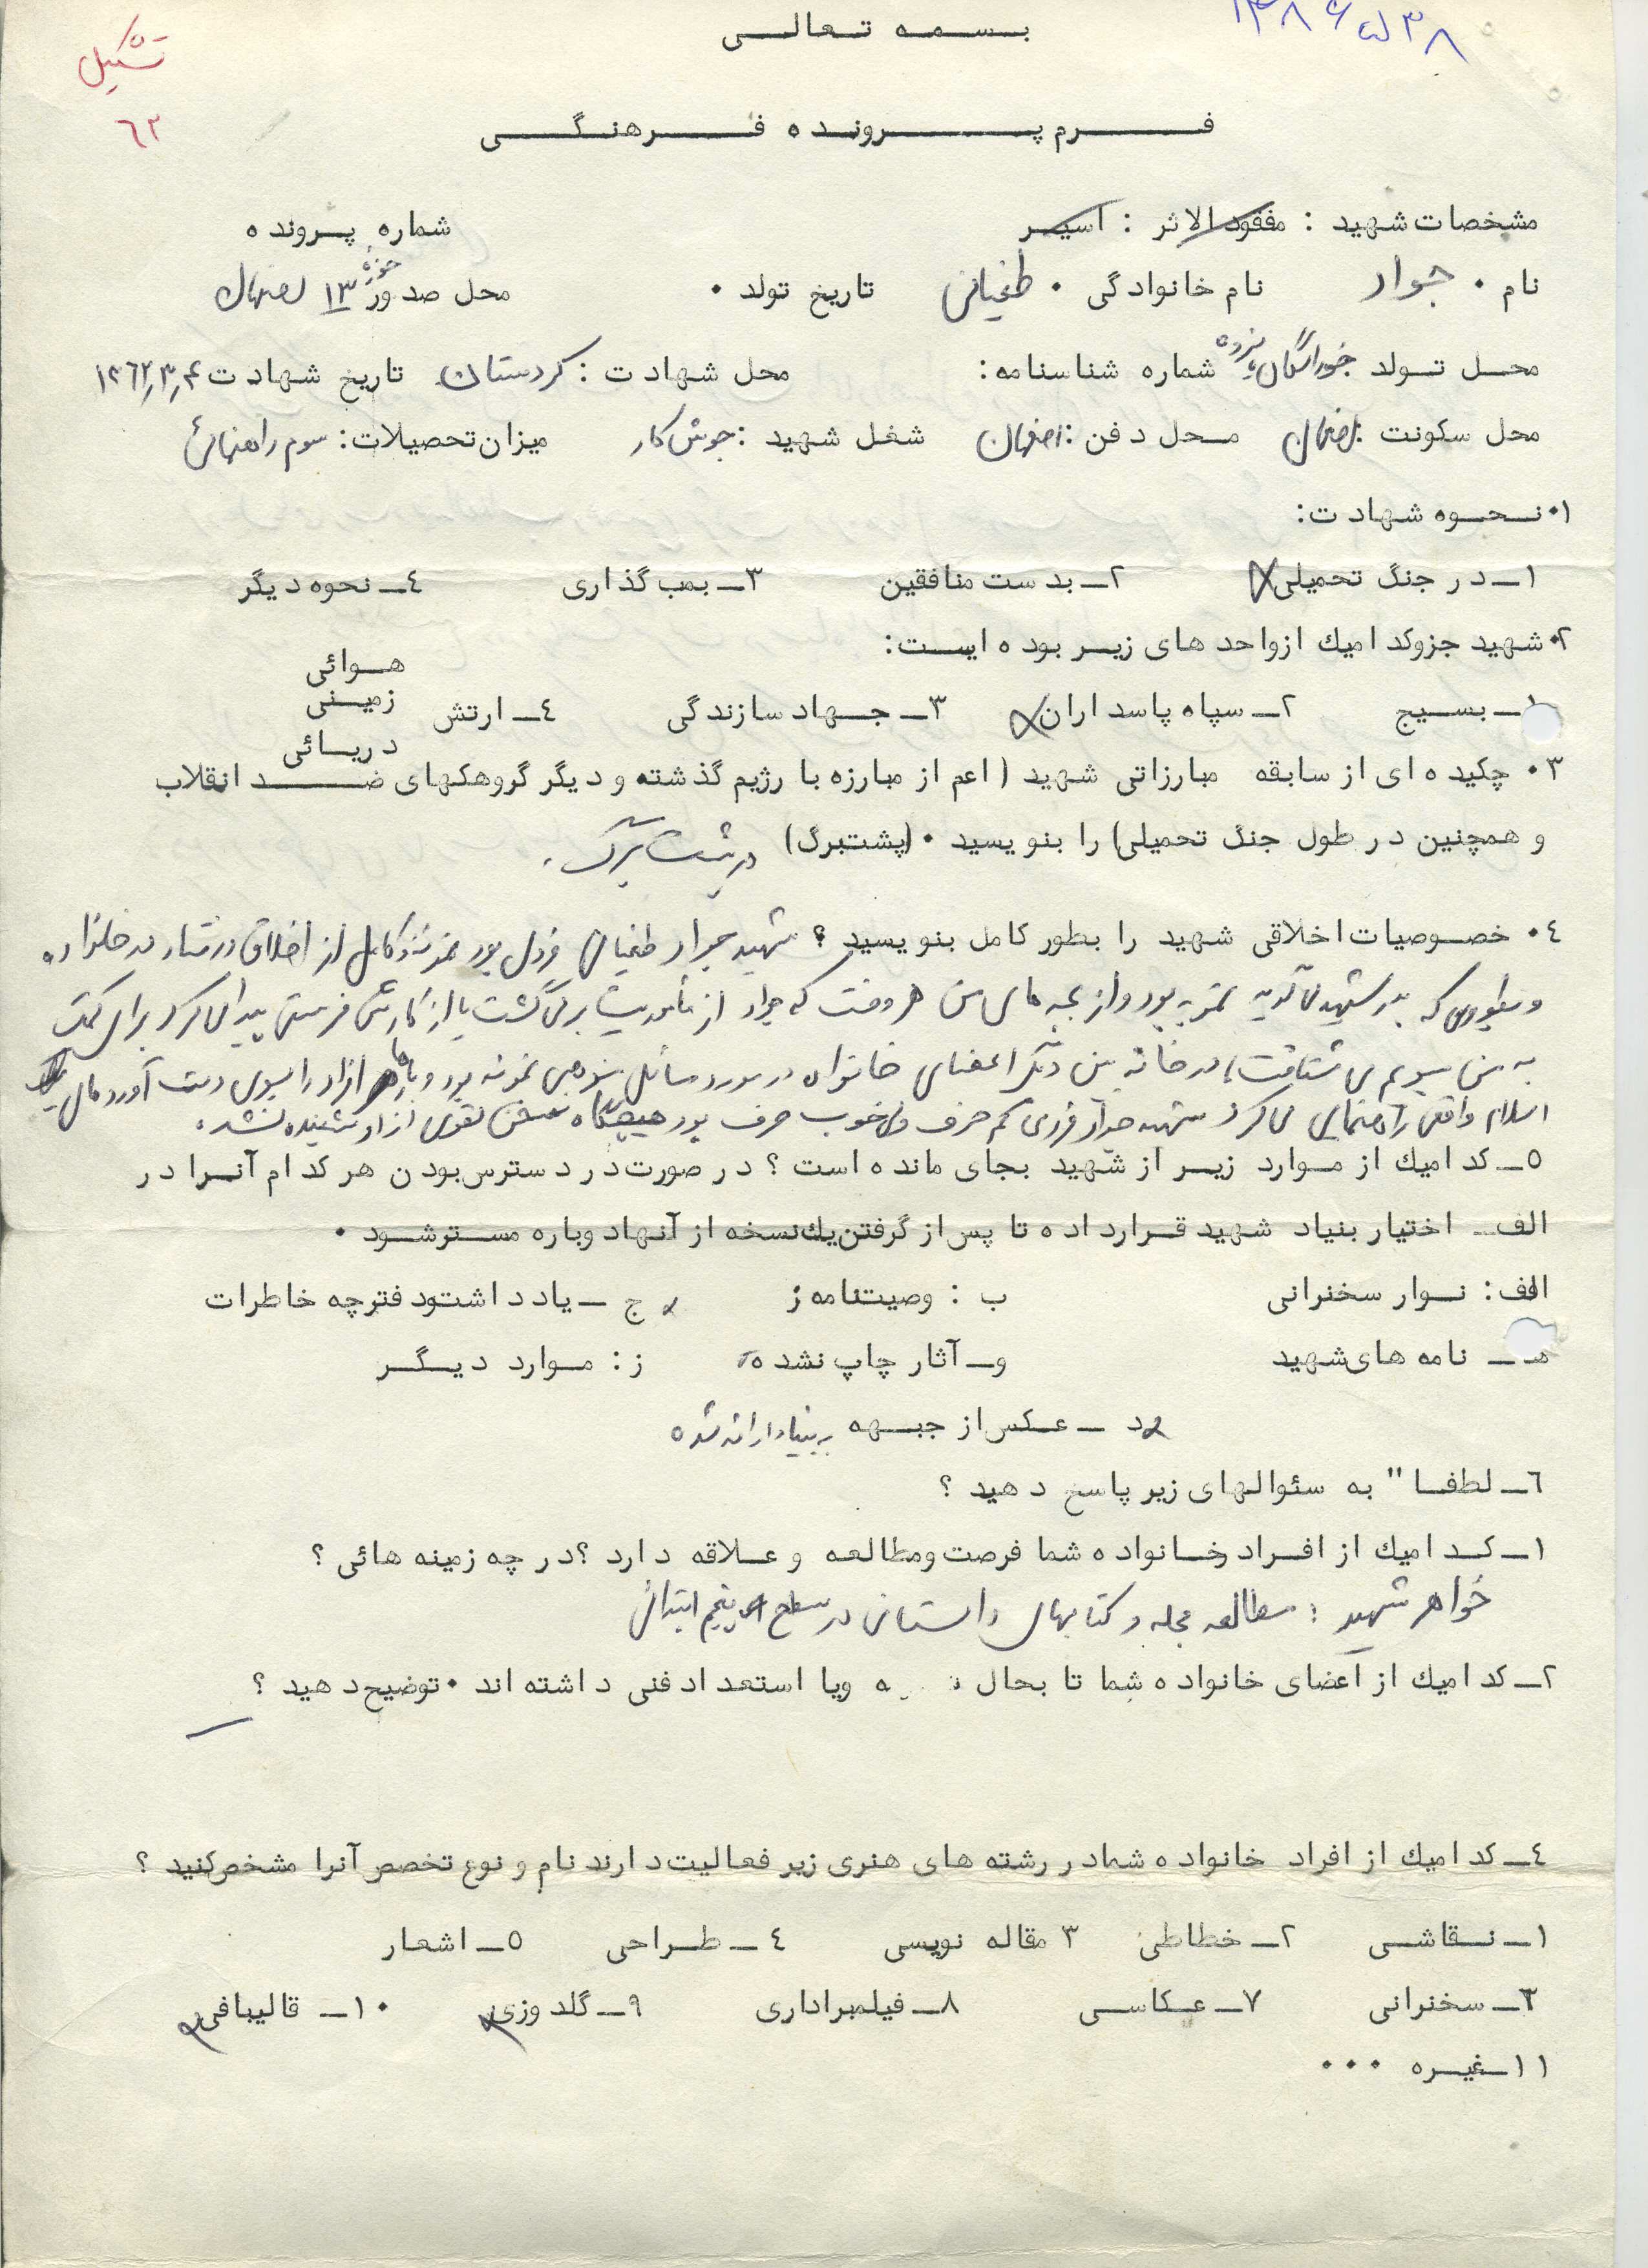 بسمه تعالی
۱۳۸۶۵۳۸
تشکیل
٦٢
فرم پرونده فرهنگی
مشخصات شهید : مفقود الاثر : اسیر شماره پرونده
نام ۰ جواد نام خانوادگی ۰ طغیانی تاریخ تولد ۰ محل صدور حوزه ۱۳ اصفهان
محل تولد خوراسگان شماره شناسنامه: محل شهادت : کردستان تاریخ شهادت ۱۳٦۲٫۳٫۴
محل سکونت اصفهان محل دفن : اصفهان شغل شهید : جوش کار میزان تحصیلات: سوم راهنمائی
۰۱ نحوه شهادت:
۱ـ در جنگ تحمیلی ۲ـ بدست منافقین ۳ـ بمب گذاری ٤ـ نحوه دیگر
۰۲ شهید جزو کدامیك از واحد های زیر بوده ایست:
هوائی
۱ـ بسیج ۲ـ سپاه پاسداران ۳ـ جهاد سازندگی ٤ـ ارتش زمینی
دریائی
۰۳ چکیده ای از سابقه مبارزاتی شهید (اعم از مبارزه با رژیم گذشته و دیگر گروهکهای ضد انقلاب
و همچنین در طول جنگ تحمیلی) را بنویسید ۰ (پشت برگ) در پشت برگ .
۰٤ خصوصیات اخلاقی شهید را بطور کامل بنویسید ؟ شهید جواد طغیانی فردی بود نمونه و کامل از اخلاق و رفتار در خانواده
و بطوری که پدر شهید می گوید نمونه بود و از بچه های من هر وقت که جواد از مأموریت برمی گشت یا از کارش فرصتی پیدا می کرد برای کمک
به من سویم می شتافت، در خانه بین دیگر اعضای خانواده در مورد مسائل مذهبی نمونه بود و افراد را بسوی دست آوردهای
اسلام واقعی راهنمایی می کرد شهید جواد فردی کم حرف ولی خوب حرف بود هیچگاه سخن لغوی از او شنیده نشد .
۵ـ کدامیك از موارد زیر از شهید بجای مانده است ؟ در صورت در دسترس بودن هر کدام آنرا در
الف ـ اختیار بنیاد شهید قرار داده تا پس از گرفتن یك نسخه از آنها دوباره مسترشود ۰
الف: نوار سخنرانی ب : وصیتنامه ج ـ یادداشت و دفترچه خاطرات
هـ ـ نامه های شهید وـ آثار چاپ نشده ز: موارد دیگر
د ـ عکس از جبهه به بنیاد ارائه شده
٦ـ لطفا" به سئوالهای زیر پاسخ دهید ؟
۱ـ کدامیك از افراد خانواده شما فرصت ومطالعه و علاقه دارد ؟ در چه زمینه هائی ؟
خواهر شهید : مطالعه مجله و کتابهای داستانی در سطح پنجم ابتدائی
۲ـ کدامیك از اعضای خانواده شما تا بحال ه ویا استعداد فنی داشته اند ۰ توضیح دهید ؟
٤ـ کدامیك از افراد خانواده شما در رشته های هنری زیر فعالیت دارند نام و نوع تخصص آنرا مشخص کنید ؟
۱ـ نقاشی ۲ـ خطاطی ۳ مقاله نویسی ٤ـ طراحی ۵ـ اشعار
٦ـ سخنرانی ۷ـ عکاسی ۸ـ فیلمبراداری ۹ـ گلدوزی ۱۰ـ قالیبافی
۱۱ـ غیره ۰۰۰